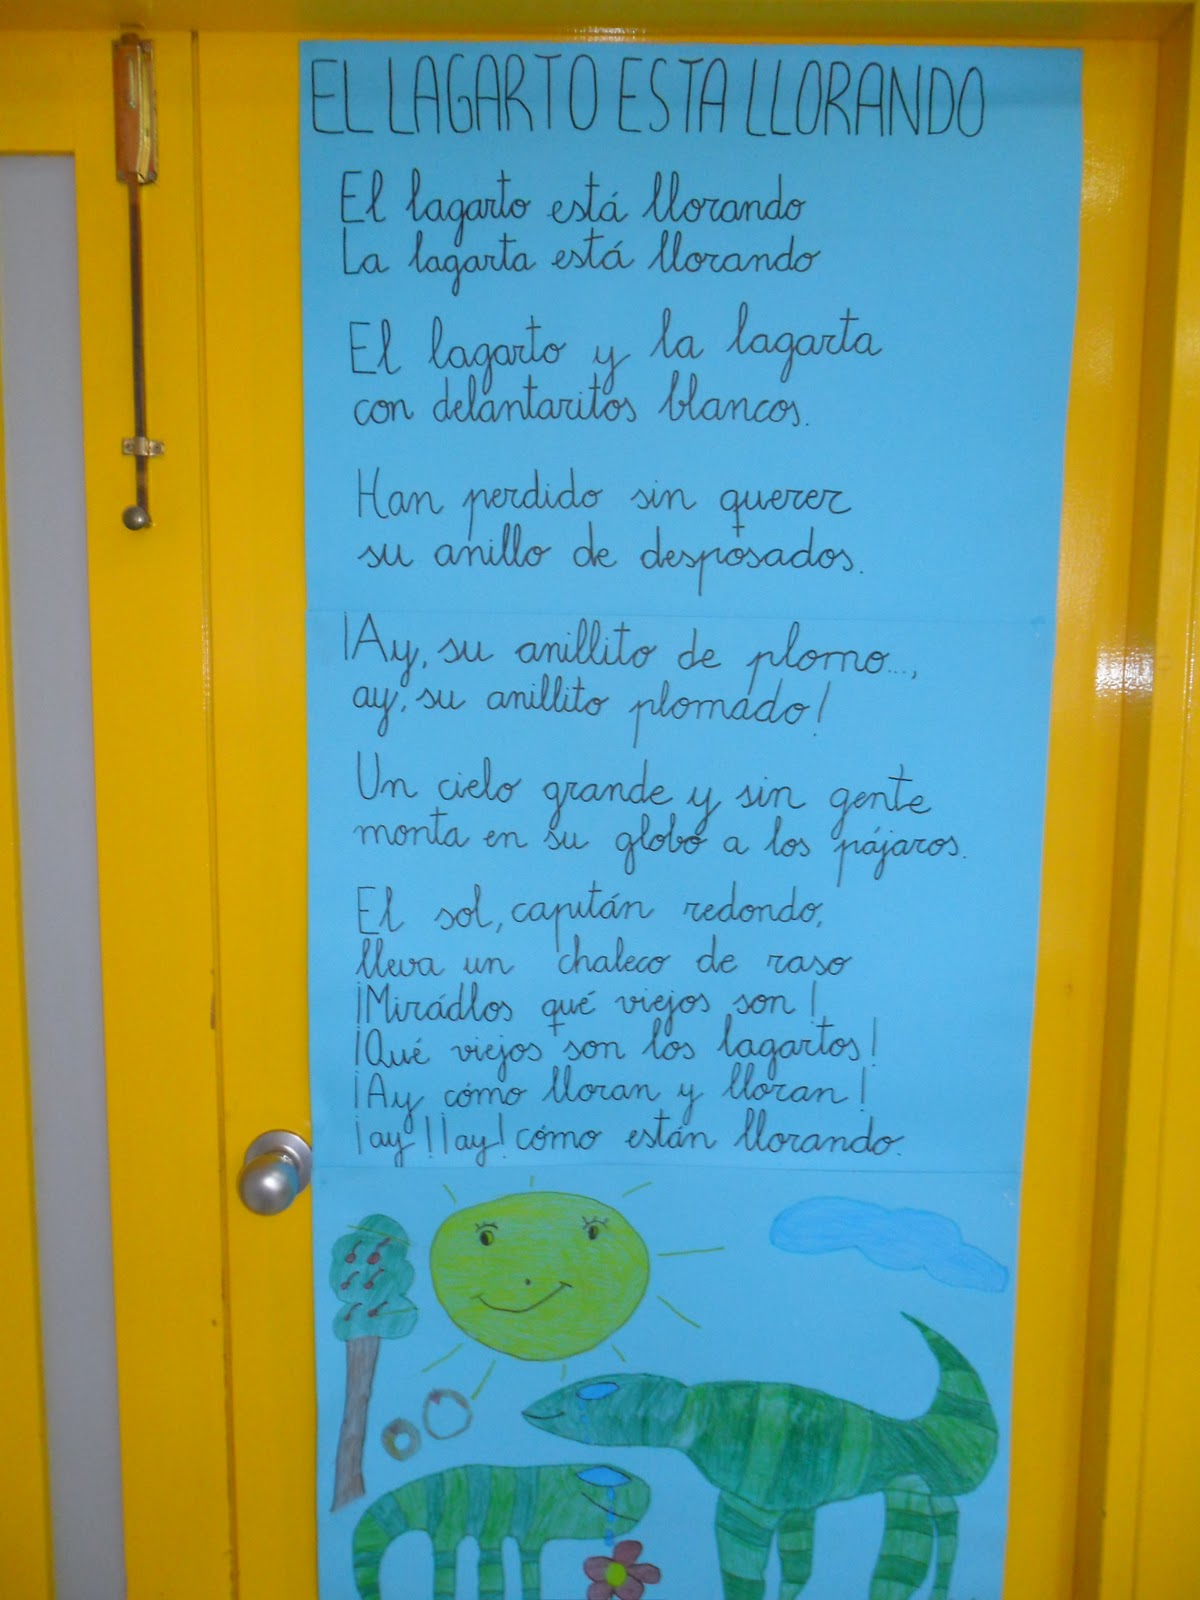 EL LAGARTO ESTA LLORANDO
El lagarto está llorando
La lagarta está llorando
El lagarto y la lagarta
con delantaritos blancos.
Han perdido sin querer
su anillo de desposados.
¡Ay, su anillito de plomo...,
ay, su anillito plomado!
Un cielo grande y sin gente
monta en su globo a los pájaros.
El sol, capitán redondo,
lleva un chaleco de raso
¡Mirádlos qué viejos son!
¡Qué viejos son los lagartos!
¡Ay cómo lloran y lloran!
¡ay! ¡ay! cómo están llorando.